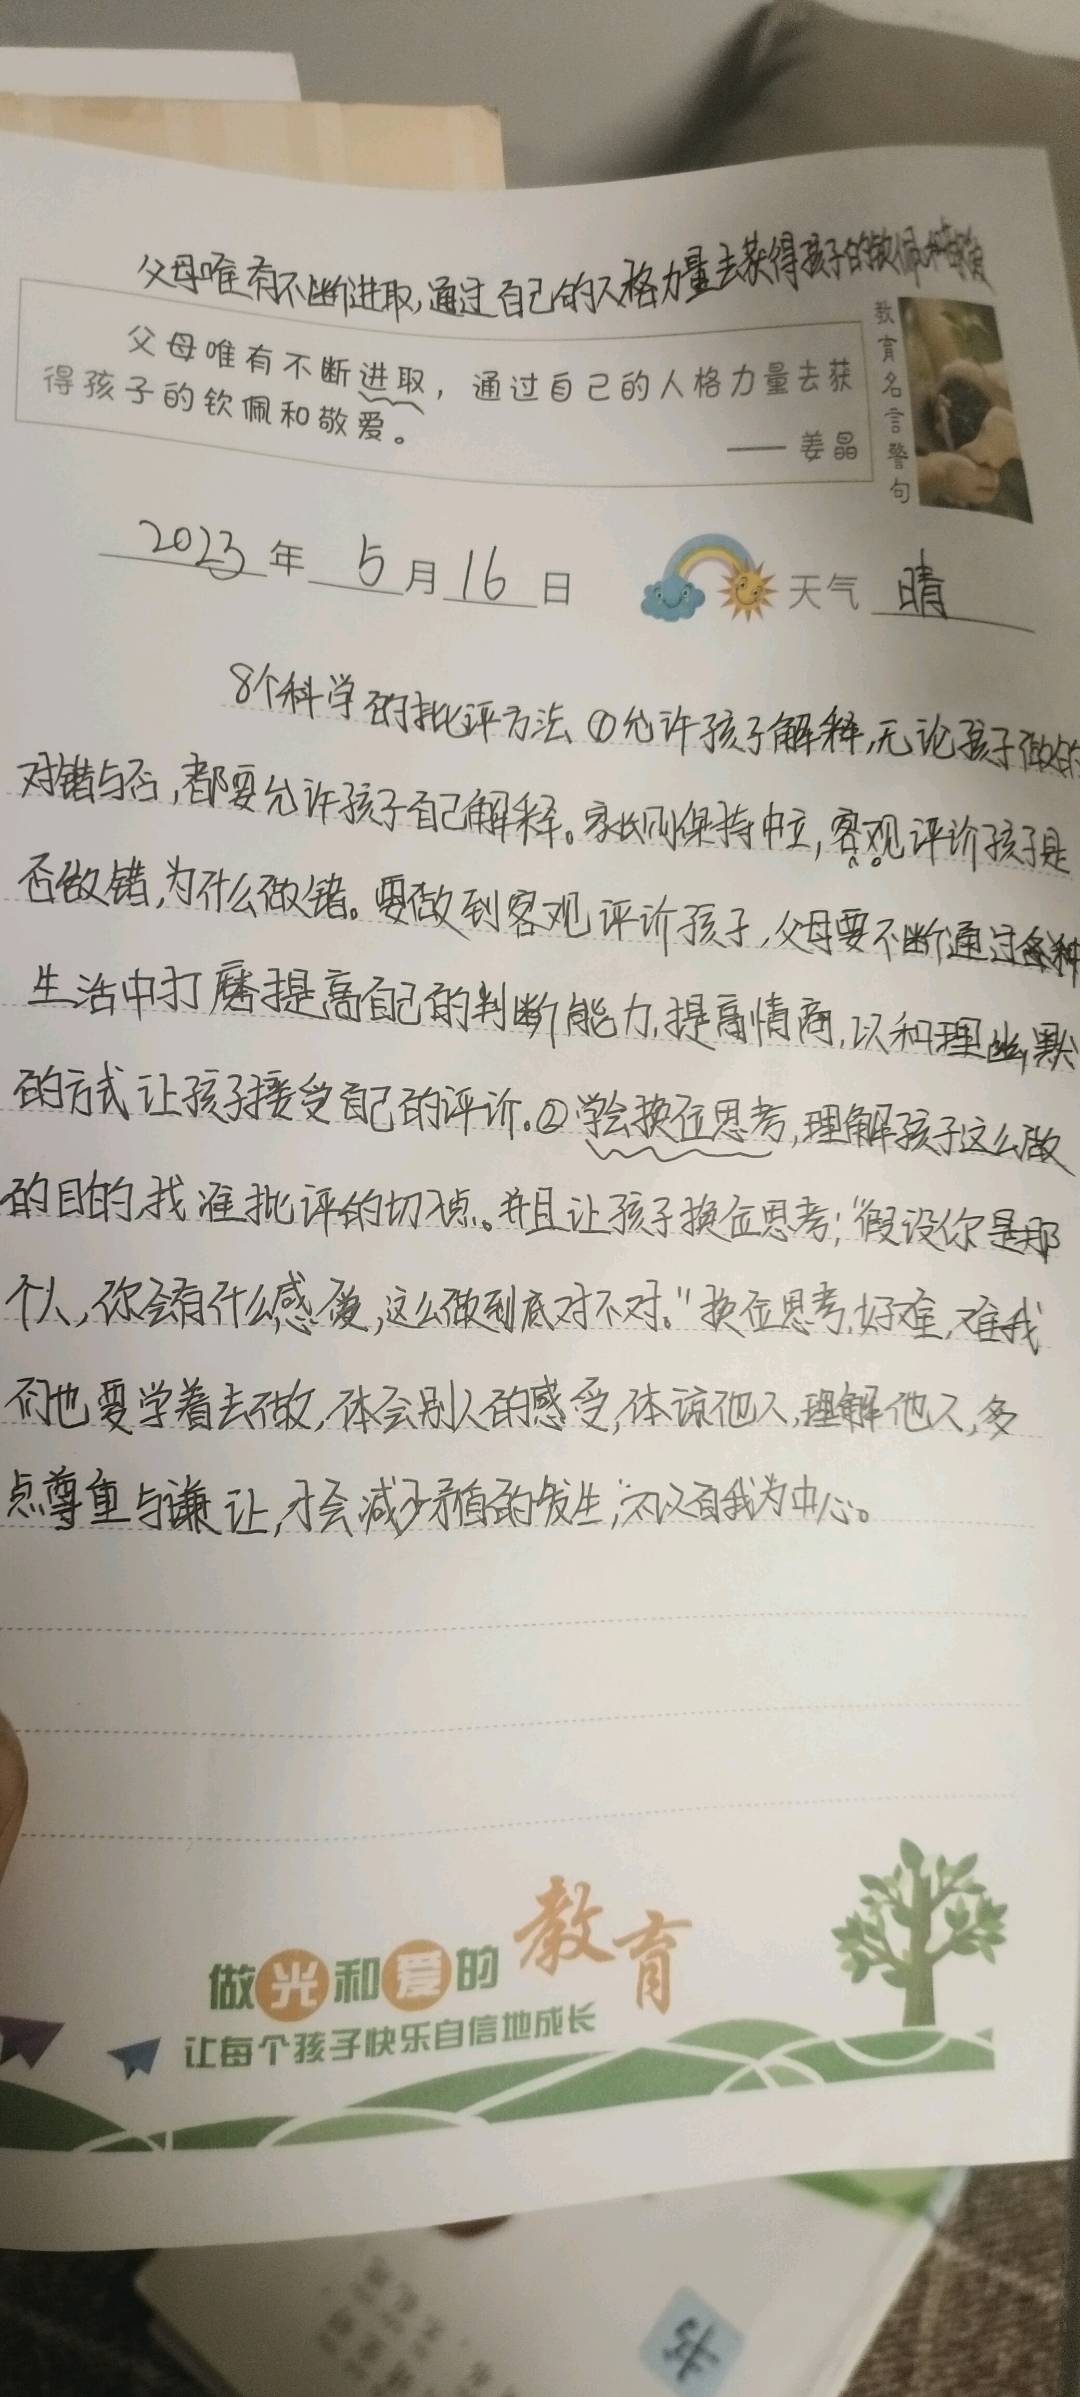 父母唯有不断进取,通过自己的人格力量去获得孩子的钦佩和敬爱
父母唯有不断进取，通过自己的人格力量去获
得孩子的钦佩和敬爱。
——姜晶
教育名言警句
2023年5月16日 天气 晴
8个科学的批评方法、①允许孩子解释,无论孩子做的
对错与否,都要允许孩子自己解释。家长则保持中立,客观评价孩子是
否做错,为什么做错。要做到客观评价孩子,父母要不断通过各种
生活中打磨提高自己的判断能力,提高情商,以和理幽默
的方式让孩子接受自己的评价.②学会换位思考,理解孩子这么做
的目的,找准批评的切点。并且让孩子换位思考;"假设你是那
个人,你会有什么感受,这么做到底对不对。"换位思考,好难,难我
们也要学着去做,体会别人的感受,体谅他人,理解他人,多
点尊重与谦让,才会减少矛盾的发生,不以自我为中心。
做光和爱的教育
让每个孩子快乐自信地成长